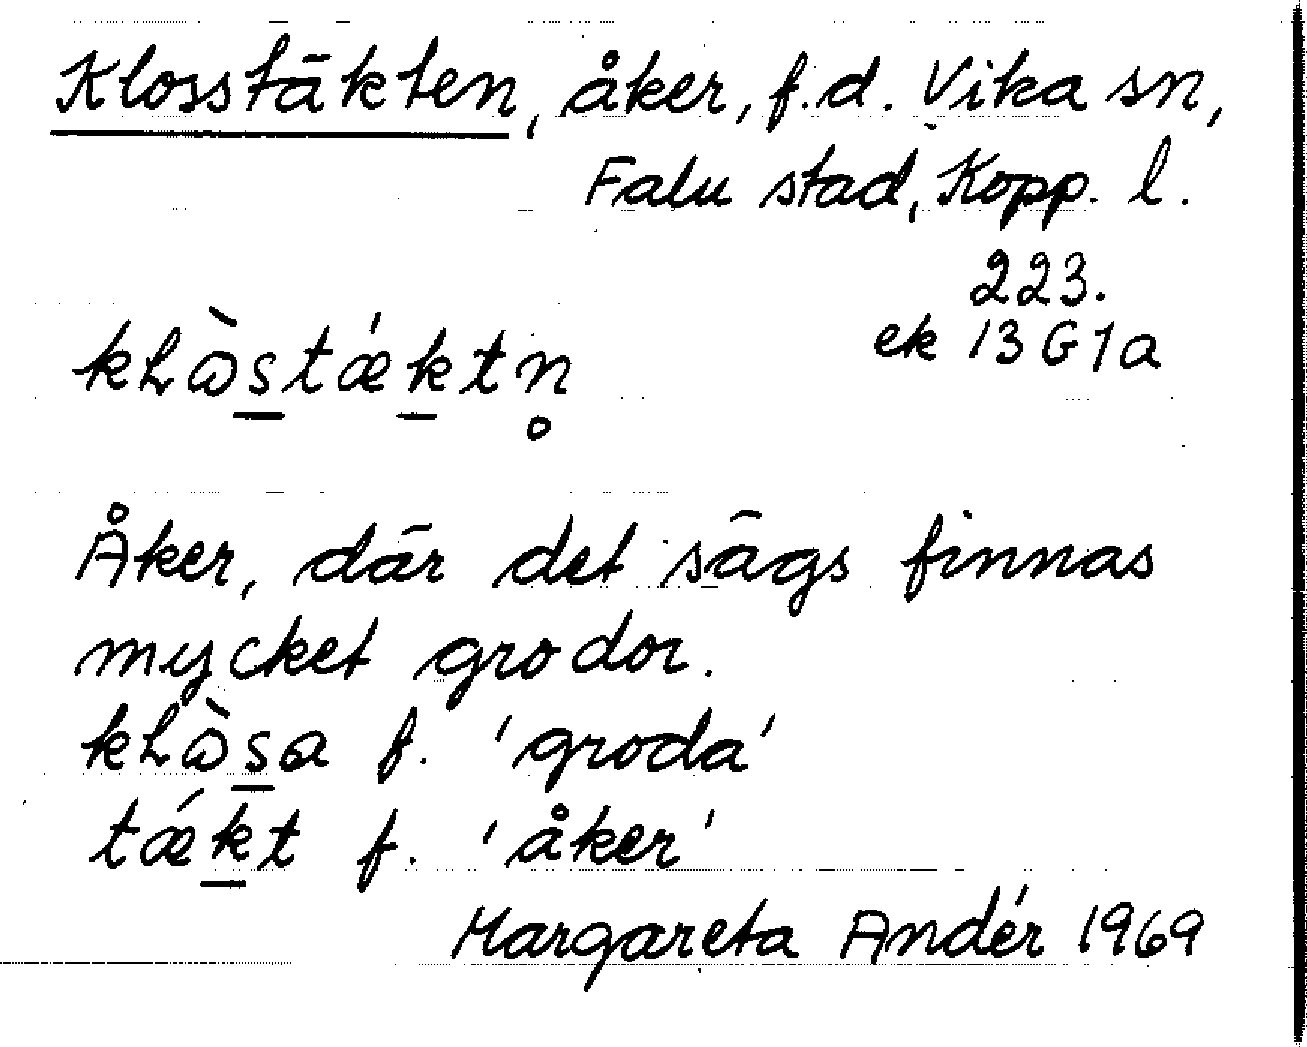 Klosstäkten, åker, f.d. Vika sn,
Falu stad, Kopp. l.
223.
ek 13 G 1a
kɫὼs̲tǽk̲tn̥
Åker, där det sägs finnas
mycket grodor.
kɫὼs̲a f. 'groda'
tǽk̲t f. 'åker'
Margareta Andér 1969